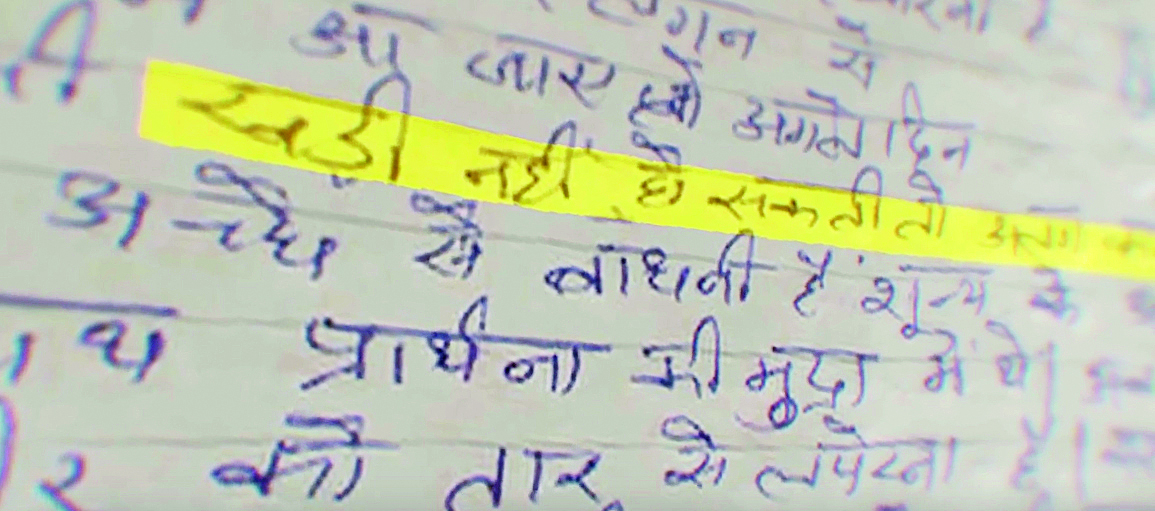 लगन से
आ जाए हो अगले दिन
खड़ी नहीं हो सकती तो अलग
अच्छे से बांधनी है शून्य के
थ प्रार्थना की मुद्रा में थे।
र को तार से लपेटना है।